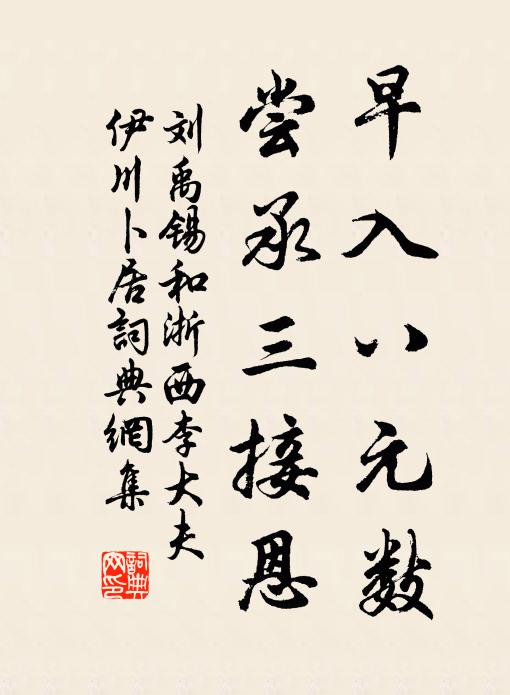 早入八元数
尝承三接恩
刘禹锡和浙西李大夫
伊川卜居詞典網集
詞典網印